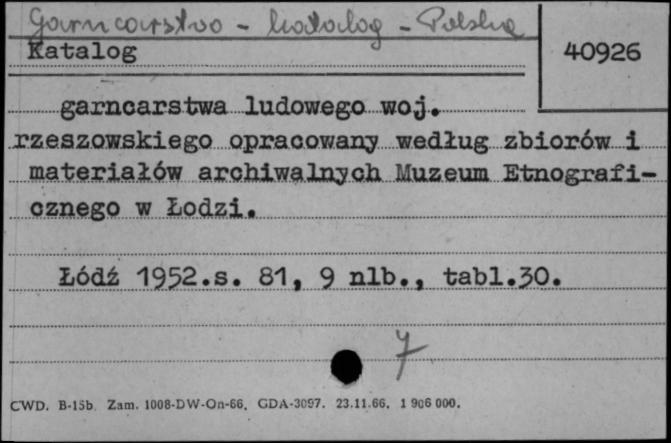 Garncarstwo - katalog - Polska
Katalog
40926
garncarstwa ludowego woj.
rzeszowskiego opracowany według zbiorów i
materiałów archiwalnych Muzeum Etnografi-
cznego w Łodzi.
Łódź 1952.s. 81, 9 nlb., tabl.30.
7
CWD. B-15b. Zam. 1008-DW-On-66. GDA-3097. 23.11.66. 1 906 000.